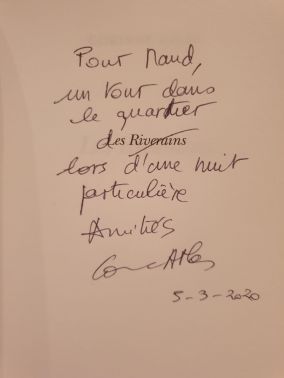 Pour Maud,
un tour dans
le quartier
des Riverains
lors d'une nuit
particulière
Amitiés
5-3-2020